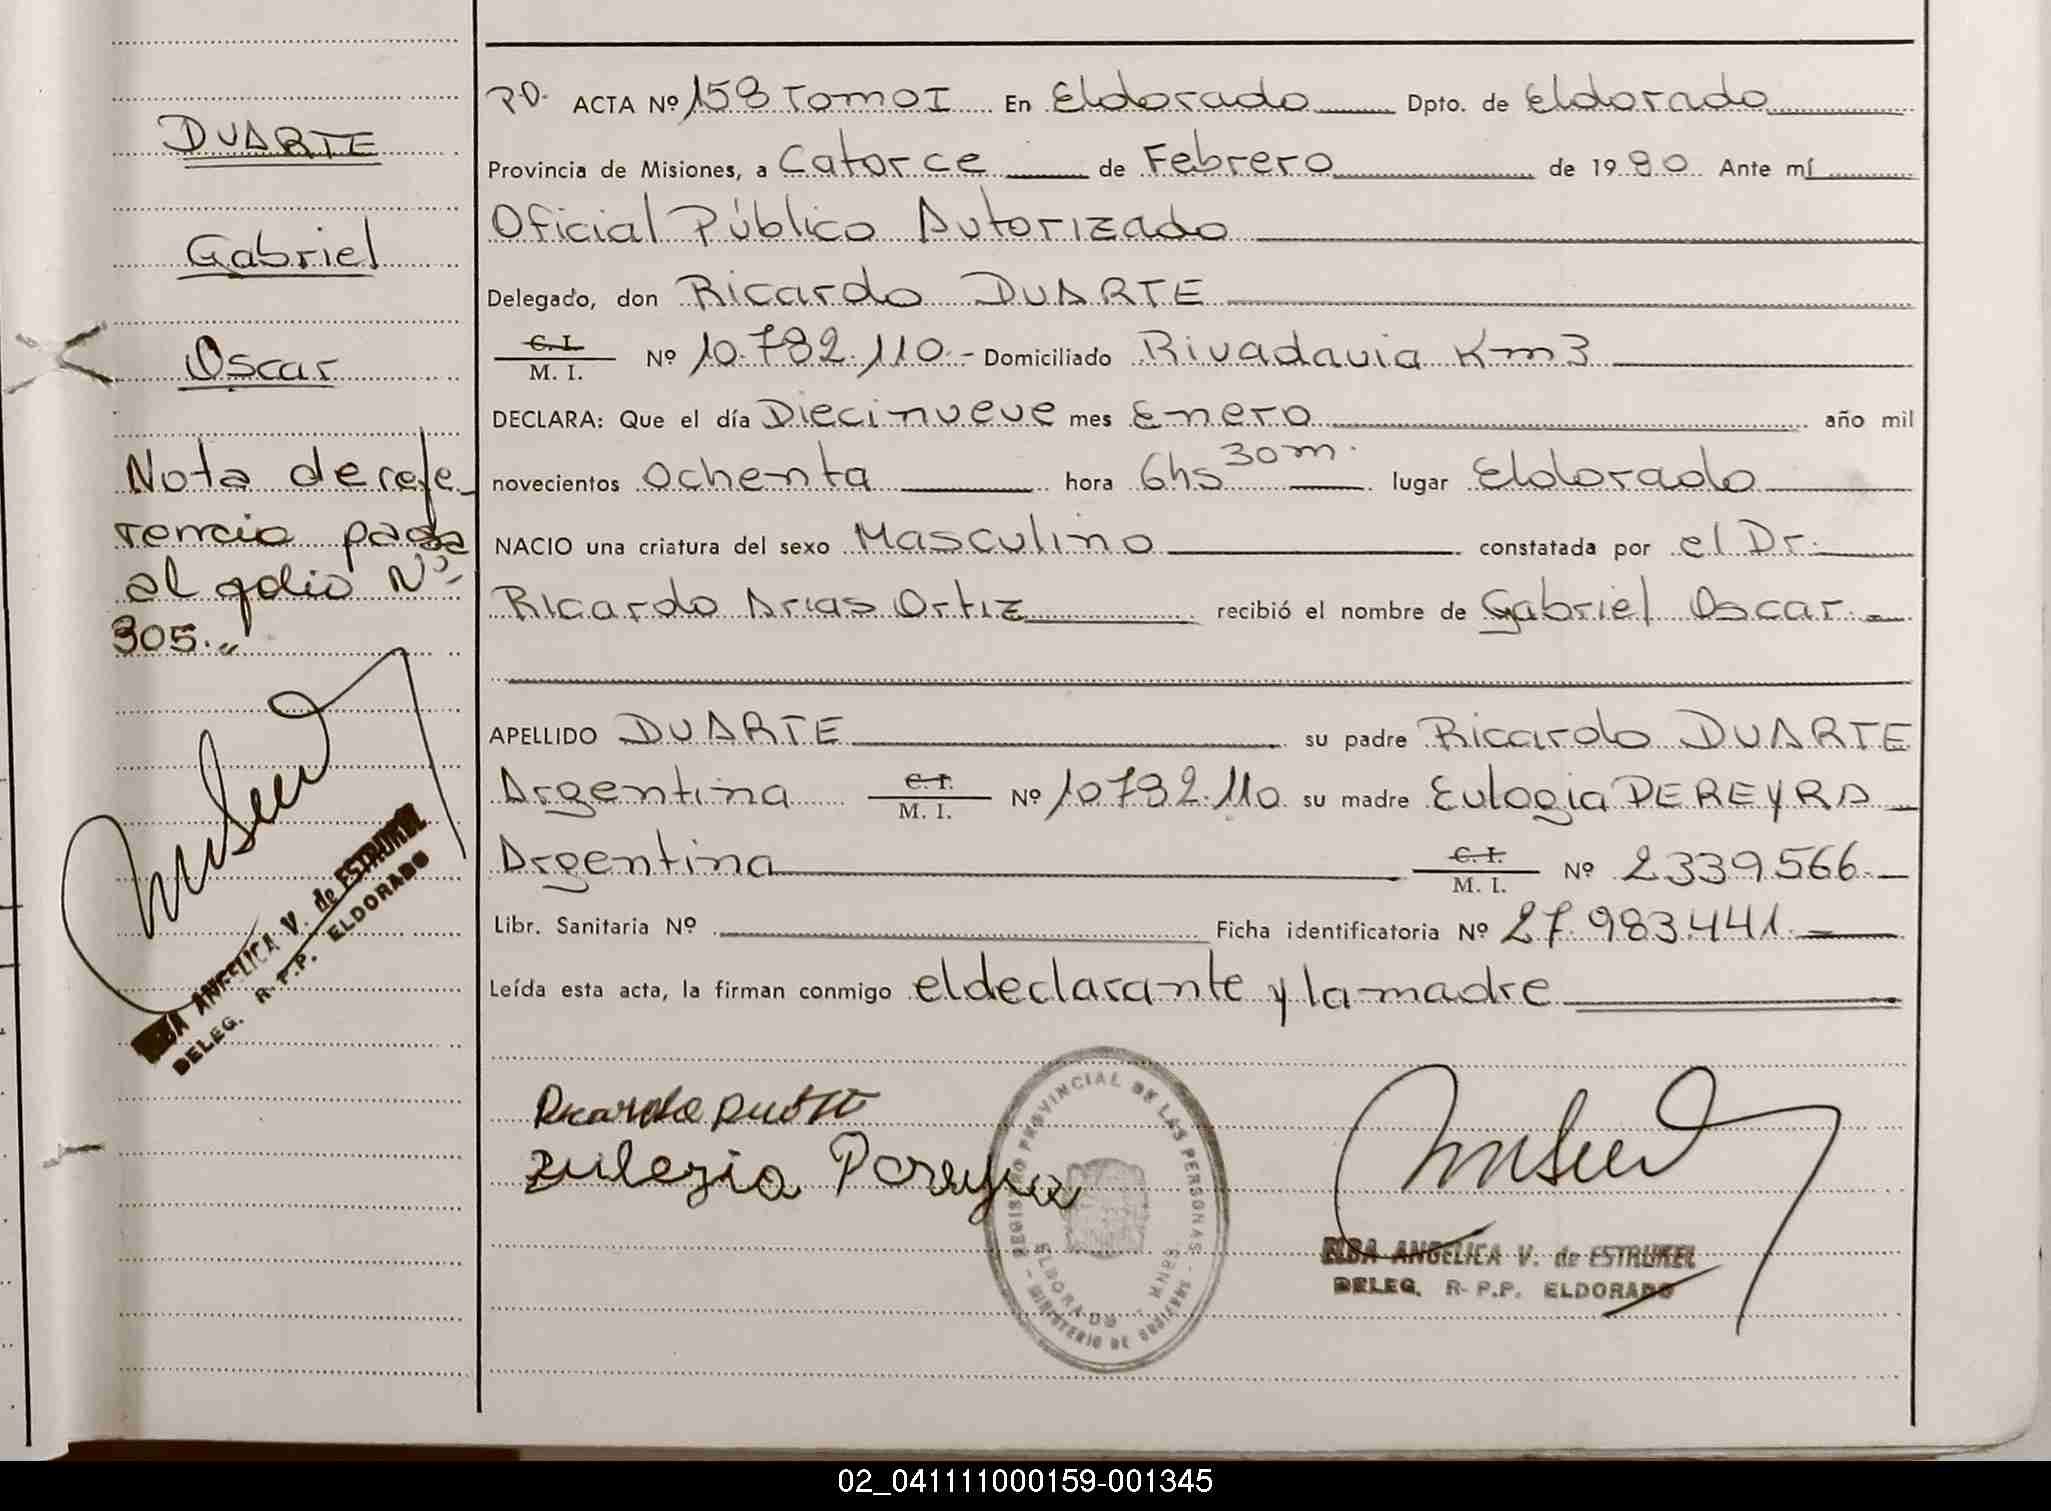 DUARTE
Gabriel
Oscar
Nota de refe-
rencia pasa
al folio Nº
305.-
ELBA ANGELICA V. de ESTRUKEL
DELEG. R.P.P. ELDORADO
P.D. ACTA Nº 158 Tomo I En Eldorado Dpto. de Eldorado
Provincia de Misiones, a Catorce de Febrero de 1980 Ante mí
Oficial Público Autorizado
Delegado, don Ricardo DUARTE
C. I.
M. I. Nº 10.782.110.- Domiciliado Rivadavia Km3
DECLARA: Que el día Diecinueve mes Enero año mil
novecientos Ochenta hora 6hs 30m. lugar Eldorado
NACIO una criatura del sexo Masculino constatada por el Dr.
Ricardo Arias Ortiz recibió el nombre de Gabriel Oscar.
APELLIDO DUARTE su padre Ricardo DUARTE
Argentina C. I. M. I. Nº 10782.110 su madre Eulogia PEREYRA
Argentina C. I. M. I. Nº 2339.566.
Libr. Sanitaria Nº Ficha identificatoria Nº 27.983.441.
Leída esta acta, la firman conmigo el declarante y la madre
Ricardo Duarte
Eulogia Pereyra
REGISTRO PROVINCIAL DE LAS PERSONAS
ELDORADO
MINISTERIO DE
ELBA ANGELICA V. de ESTRUKEL
DELEG. R.P.P. ELDORADO
02_041111000159-001345